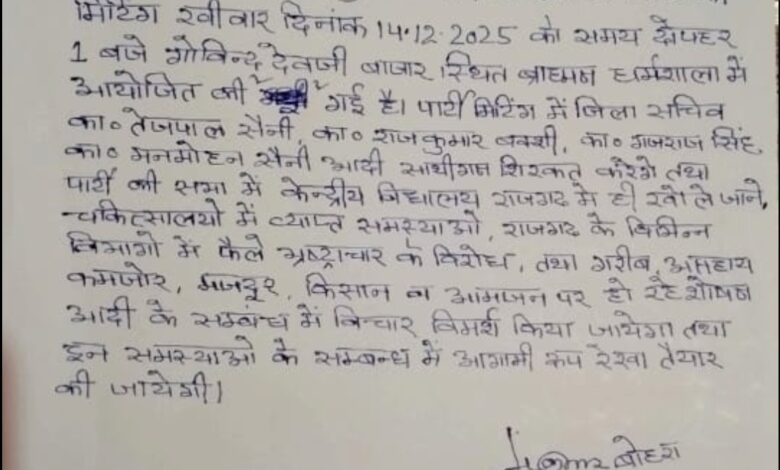 मिटिंग रवीवार दिनांक 14.12.2025 को समय दोपहर
1 बजे गोविन्द देवजी बाजार स्थित ब्राह्मण धर्मशाला में
आयोजित की गई है। पार्टी मिटिंग में जिला सचिव
का० तेजपाल सैनी, का० राजकुमार बक्शी, का० गजराज सिंह,
का० मनमोहन सैनी आदी साथीगण शिरकत करेगे तथा
पार्टी की सभा में केन्द्रीय विद्यालय राजगढ मे ही खोले जाने,
चकित्सालयो में व्याप्त समस्याओ, राजगढ के विभिन्न
विभागो में फैले भ्रष्ट्राचार के विरोध, तथा गरीब, असहाय
कमजोर, मजदूर, किसान व आमजन पर हो रहे शोषण
आदी के सम्बन्ध में विचार विमर्श किया जायेगा तथा
इन समस्याओ के सम्बन्ध में आगामी रूप रेखा तैयार
की जायेगी।
बोहरा